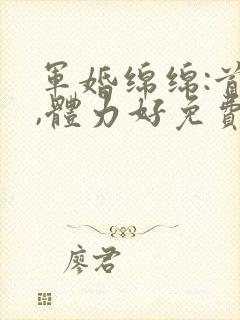 軍婚綿綿:首
,體力好免費
廖君